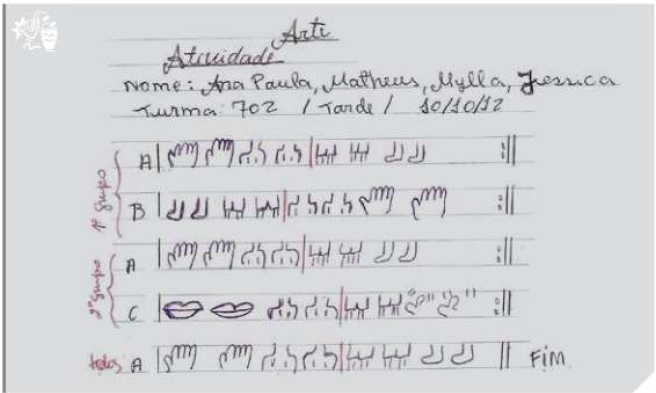 Arte
Atividade
Nome: Ana Paula, Matheus, Mylla, Jessica
Turma: 702 / Tarde / 10/10/12
1º Grupo
A
B
2º Grupo
A
C
todos A Fim